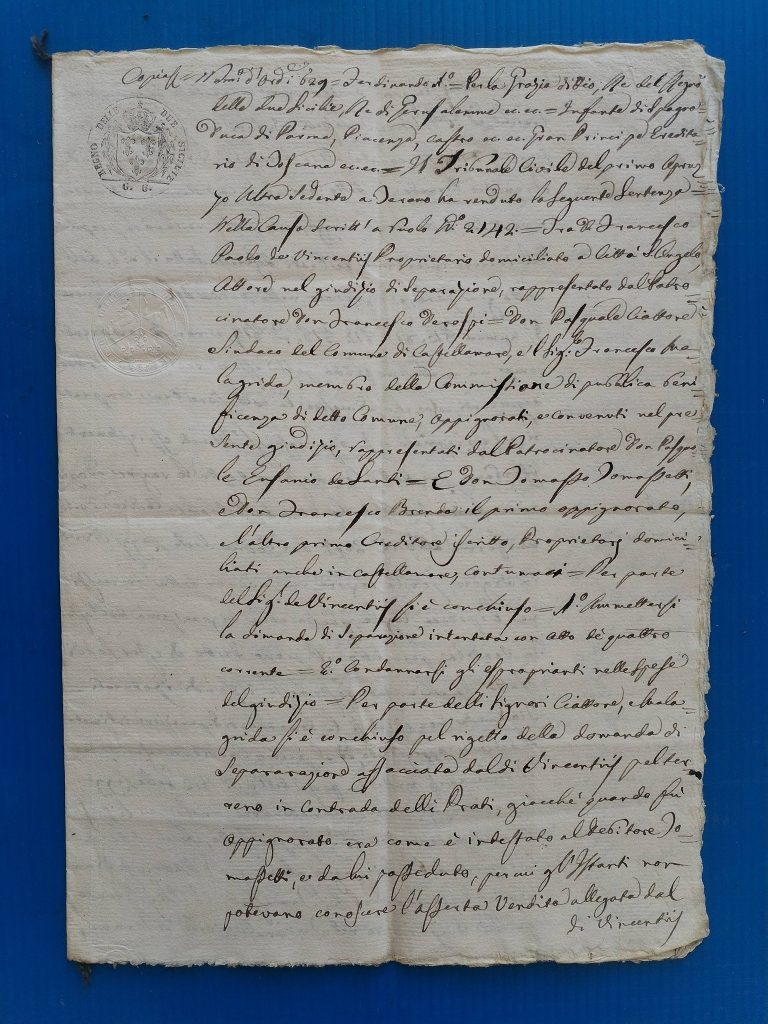 Copia = Num.o d'Ord.e 629 = Ferdinando I.o = Per la Grazia di Dio, Re del Regno
delle due Sicilie, Re di Gerusalemme ec. ec. = Infante di Spagna
Duca di Parma, Piacenza, Castro ec. ec. Gran Principe Eredita
rio di Toscana ec. ec. = Il Tribunale Civile del primo Apruz
zo Ultra Sedente a Teramo ha renduto la seguente Sentenza
Nella Causa scritt' a ruolo N.o 2142 = Tra D. Francesco
Paolo de Vincentiis Proprietario domiciliato a Città S. Angelo,
Attore nel giudizio di Separazione, rappresentato dal Patro
cinatore Don Francesco Verospi = Don Pasquale Ciattore
Sindaco del Comune di Castellamare, e 'l Sig.r Francesco Ma
lagrida, membro della Commissione di pubblica beni
ficenza di detto Comune, oppignorati, e convenuti nel pre
sente giudizio, rappresentati dal Patrocinatore Don Pasqua
le Eufanio de Santi = E Don Tomasso Tomassetti,
e Don Francesco Brenda il primo oppignorato,
e l'altro primo Creditore iscritto, Proprietarj domici
liati anche in Castellamare, contumaci = Per parte
del Sig.r de Vincentiis si è conchiuso = 1.o Ammettersi
la domanda di Separazione intentata con atto de' quattro
corrente = 2.o Condannarsi gli esproprianti nelle spese
del giudizio = Per parte delli Signori Ciattore, e Mala
grida si è conchiuso pel rigetto della domanda di
Separazione affacciata dal di Vincentiis pel ter
reno in Contrada delli Prati, giacchè quando fù
oppignorato era come è intestato al debitore To
massetti, e da lui posseduto, per cui gl'Istanti non
potevano conoscere l'asserta Vendita allegata dal
di Vincentiis
REGNO DELLE DUE SICILIE
G. G.